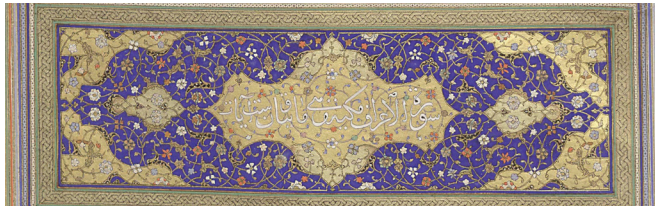 سورة الاعراف مكية وهى مائتان وست ايات